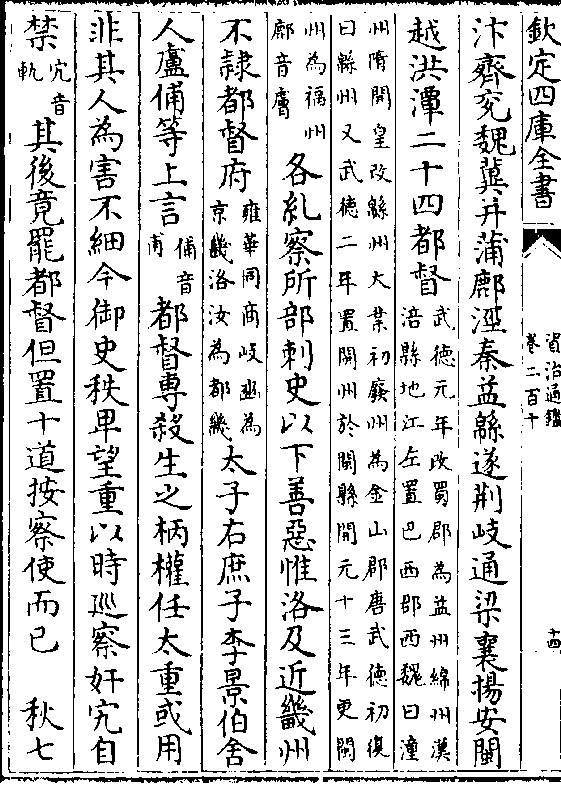 欽定四庫全書
資治通鑑
卷二百十
十四
汴齊兖魏冀并蒲鄜涇秦益緜遂荆岐通梁襄揚安閩
越洪潭二十四都督
武德元年改蜀郡為益州綿州漢
涪縣地江左置巴西郡西魏曰潼
州隋開皇改緜州大業初廢州為金山郡唐武德初復
曰緜州又武德二年置閩州於閩縣開元十三年更閩
州為福州
鄜音膚
各糺察所部刺史以下善惡惟洛及近畿州
不隷都督府
雍華同商岐豳為
京畿洛汝為都畿
太子右庶子李景伯舍
人盧俌等上言
俌音
甫
都督專殺生之柄權任太重或用
非其人為害不細今御史秩卑望重以時巡察奸宄自
禁
宄音
軌
其後竟罷都督但置十道按察使而已
秋七